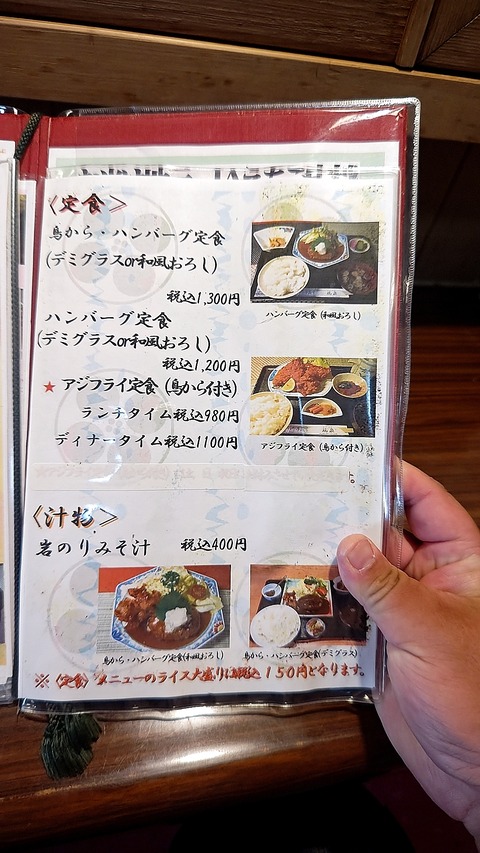 〈定食〉
鳥から・ハンバーグ定食
(デミグラスor和風おろし)
税込1,300円
ハンバーグ定食
(デミグラスor和風おろし)
税込1,200円
★ アジフライ定食 (鳥から付き)
ランチタイム税込980円
ディナータイム税込1100円
ハンバーグ定食 (和風おろし)
アジフライ定食 (鳥から付き)
〈汁物〉
岩のりみそ汁 税込400円
鳥から・ハンバーグ定食(和風おろし)
鳥から・ハンバーグ定食(デミグラス)
※〈定食〉メニューのライス大盛りは税込150円となります。